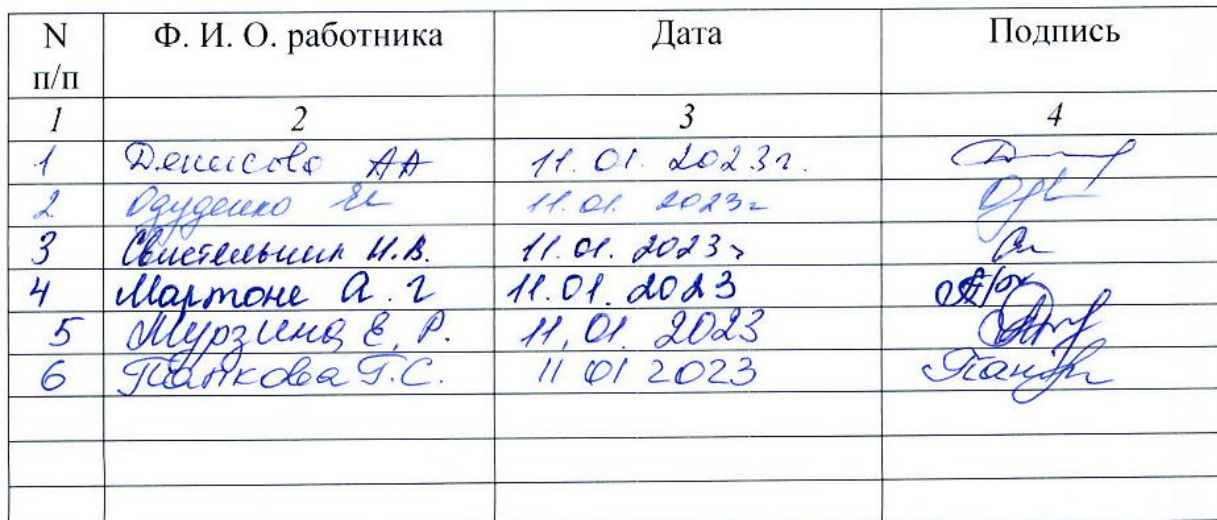 N п/п Ф. И. О. работника Дата Подпись
1 2 3 4
1 Денисова АА 11.01.2023г.
2 Одуденко 11.01.2023г
3 Свистельник И.В. 11.01.2023г
4 Мартоне А.г 11.01.2023
5 Мурзина Е.Р. 11.01.2023
6 Панкова Т.С. 11 01 2023